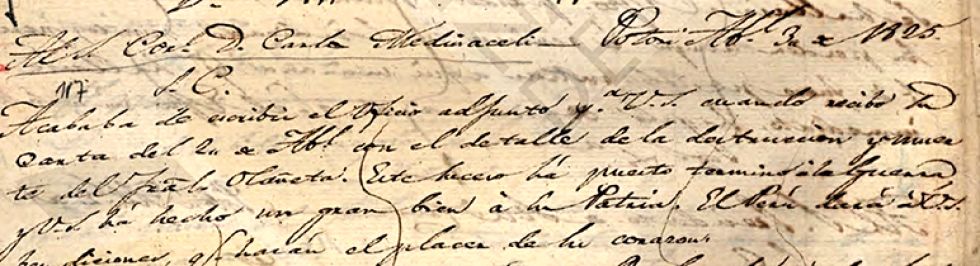 Al S. Corl. D. Carlos Medinaceli Potosi Abl. 3 de 1825.
117 S. C.
Acababa de escribir el oficio adjunto pa. V.S. cuando recibo la
Carta del 2 de Abl. con el detalle de la destruccion y muer
te del Gral. Olañeta. Este suceso há puesto termino á la Guerra
y V.S. há hecho un gran bien à la Patria. El Perú dará à V.S.
bendiciones, q. harán el placer de su corazon.